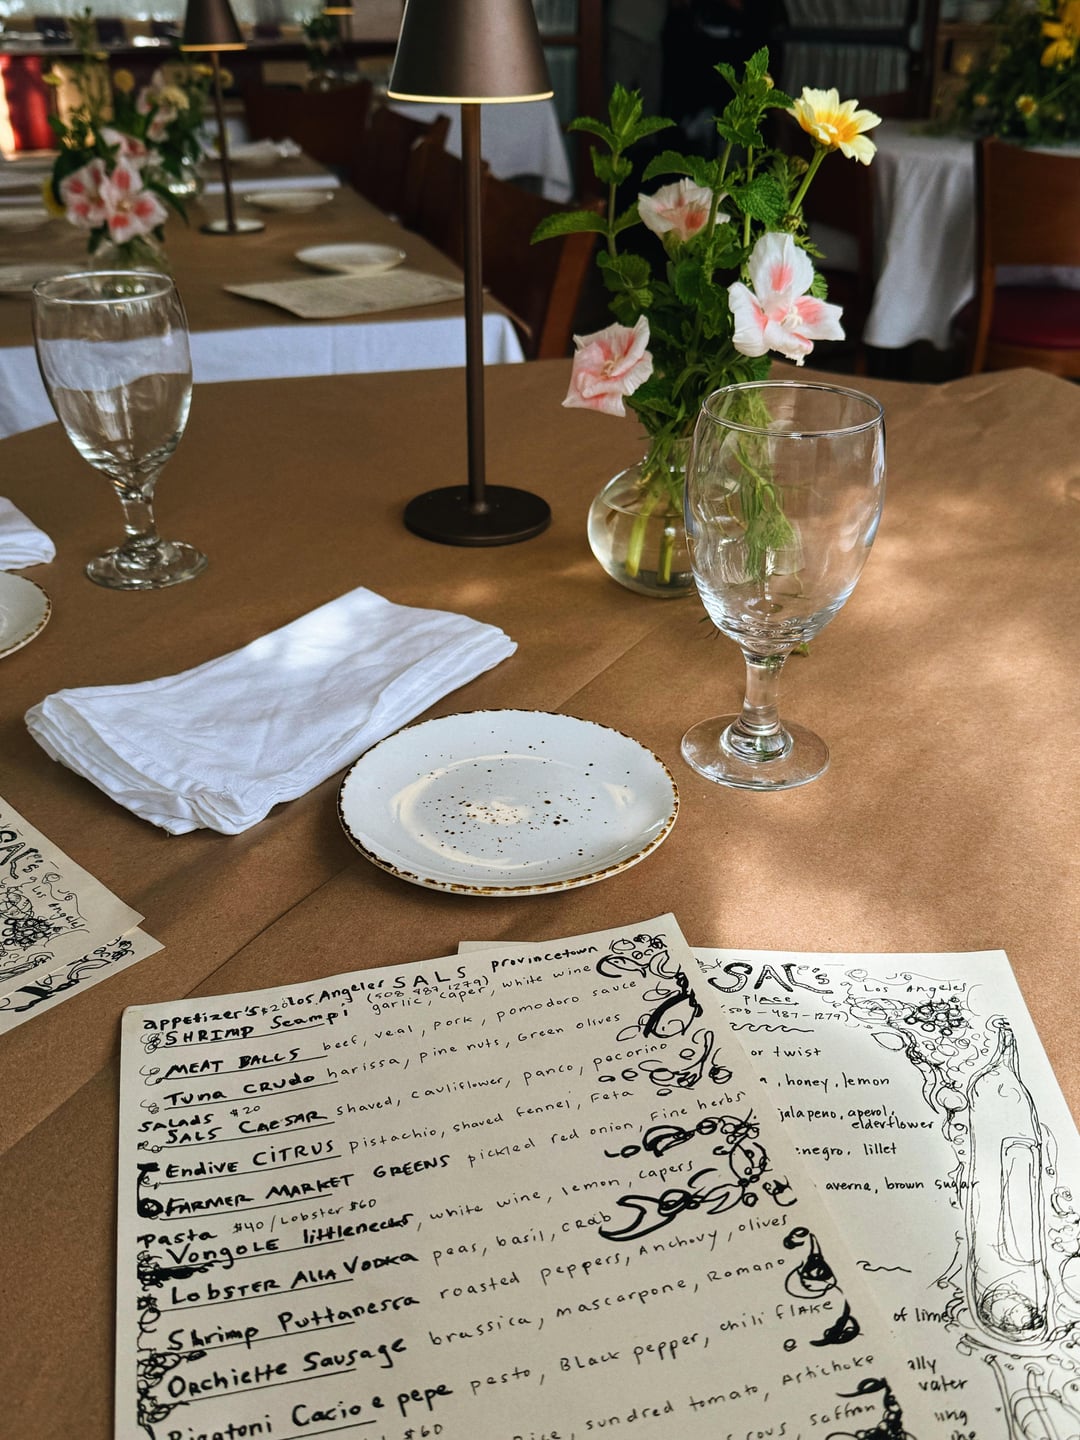 Los Angeler SALS Provincetown
appetizer's $20 (508 487 1279)
SHRIMP Scampi garlic, caper, white wine
MEAT BALLS beef, veal, pork, pomodoro sauce
Tuna CRUdo harissa, pine nuts, Green olives
SALADS $20
SALS CAESAR shaved, cauliflower, panco, pecorino
Endive CITRUS pistachio, shaved fennel, Feta
FARMER MARKET GREENS pickled red onion, Fine herbs
Pasta $40/Lobster $60
VonGOLE littlenecks, white wine, lemon, capers
LOBSTER AllA VodkA peas, basil, CRAb
Shrimp Puttanesca roasted peppers, Anchovy, olives
ORchiette Sausage brassica, mascarpone, Romano
Rigatoni Cacio e pepe pesto, Black pepper, chili flAKE
$60
sundred tomato, Artichoke
saffron
SAL's
PLACE
Los Angeles
508-487-1279
or twist
, honey, lemon
jalapeno, aperol,
elderflower
negro, lillet
averna, brown sugar
of lime
SAL's
Los Angeles